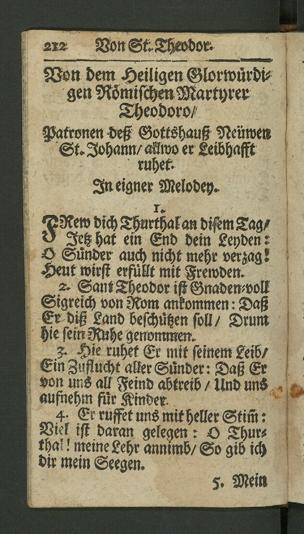 212 Von St. Theodor.
Von dem Heiligen Glorwürdi-
gen Römischen Martyrer
Theodoro/
Patronen deß Gottshauß Neüwen
St. Johann/ allwo er Leibhafft
ruhet.
In eigner Melodey.
1.
FRew dich Thurthal an disem Tag/
Jetz hat ein End dein Leyden:
O Sünder auch nicht mehr verzag!
Heut wirst erfüllt mit Frewden.
2. Sant Theodor ist Gnaden-voll
Sigreich von Rom ankommen: Daß
Er diß Land beschützen soll/ Drum
hie sein Ruhe genommen.
3. Hie ruhet Er mit seinem Leib/
Ein Zuflucht aller Sünder: Daß Er
von uns all Feind abtreib/ Und uns
aufnehm für Kinder.
4. Er ruffet uns mit heller Stim̃:
Viel ist daran gelegen: O Thur-
thal! meine Lehr annimb/ So gib ich
dir mein Seegen.
5. Mein